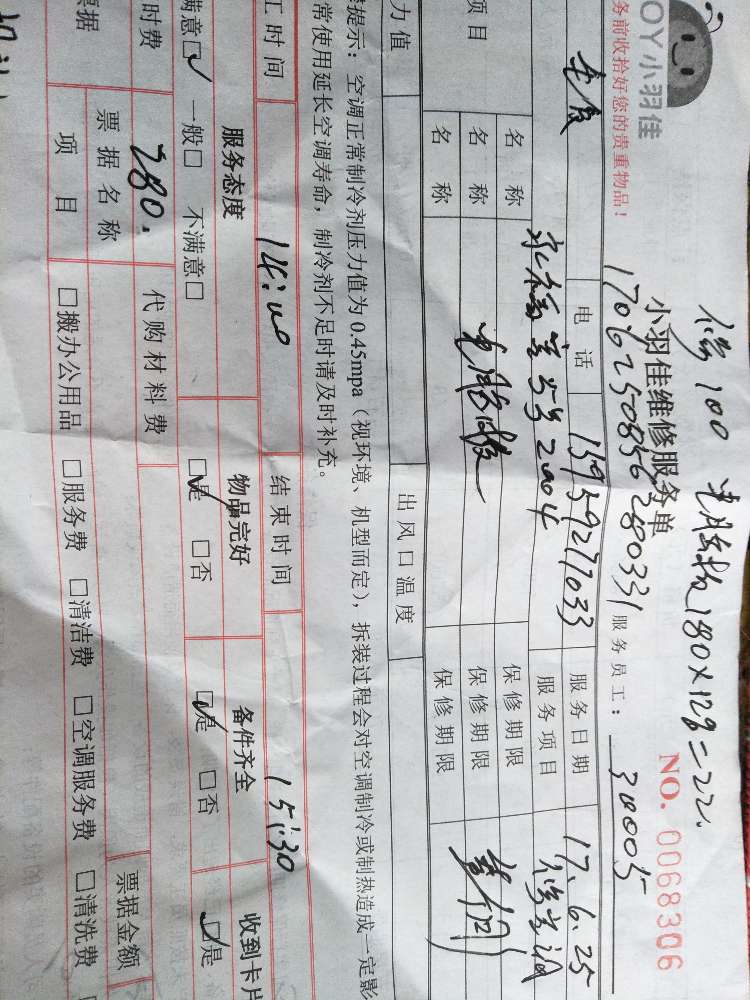 100 180×12%=22.
OY小羽佳
小羽佳维修服务单
NO. 0068306
务前收拾好您的贵重物品！
170625085628003​31 服务员工：30005
电话 15959277033 服务日期 17.6.25
2004 服务项目
项目 名称 保修期限
名称 保修期限
名称 保修期限
力值 出风口温度
提示：空调正常制冷剂压力值为0.45mpa（视环境、机型而定），拆装过程会对空调制冷或制热造成一定影
常使用延长空调寿命，制冷剂不足时请及时补充。
工时间 14:00 结束时间 15:30
服务态度 物品完好 备件齐全 收到卡片
满意□ 一般□ 不满意□ □是 □否 □是 □否 □是
时费 280. 代购材料费
票据 票据名称 票据金额
项目 □搬办公用品 □服务费 □清洁费 □空调服务费 □清洗费